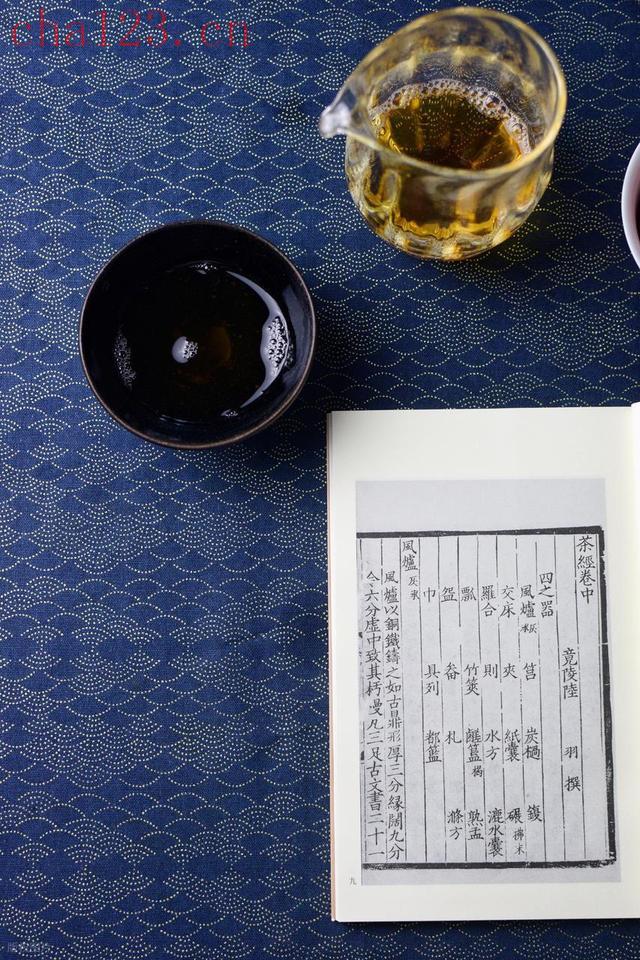 cha123.cn
茶經卷中
竟陵陸 羽 撰
四之器
風爐灰承 筥 炭檛 鍑
交床 夾 紙囊 碾拂末
羅合 則 水方 漉水囊
瓢 竹筴 鹺簋揭 熟盂
盌 畚 札 滌方
巾 具列 都籃
風爐灰承
風爐以銅鐵鑄之如古鼎形厚三分緣闊九分
令六分虛中致其杇墁凡三足古文書二十一
九